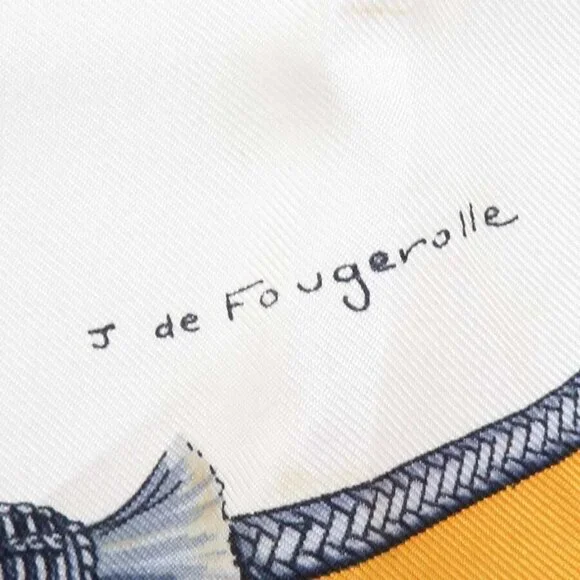 J de Fougerolle